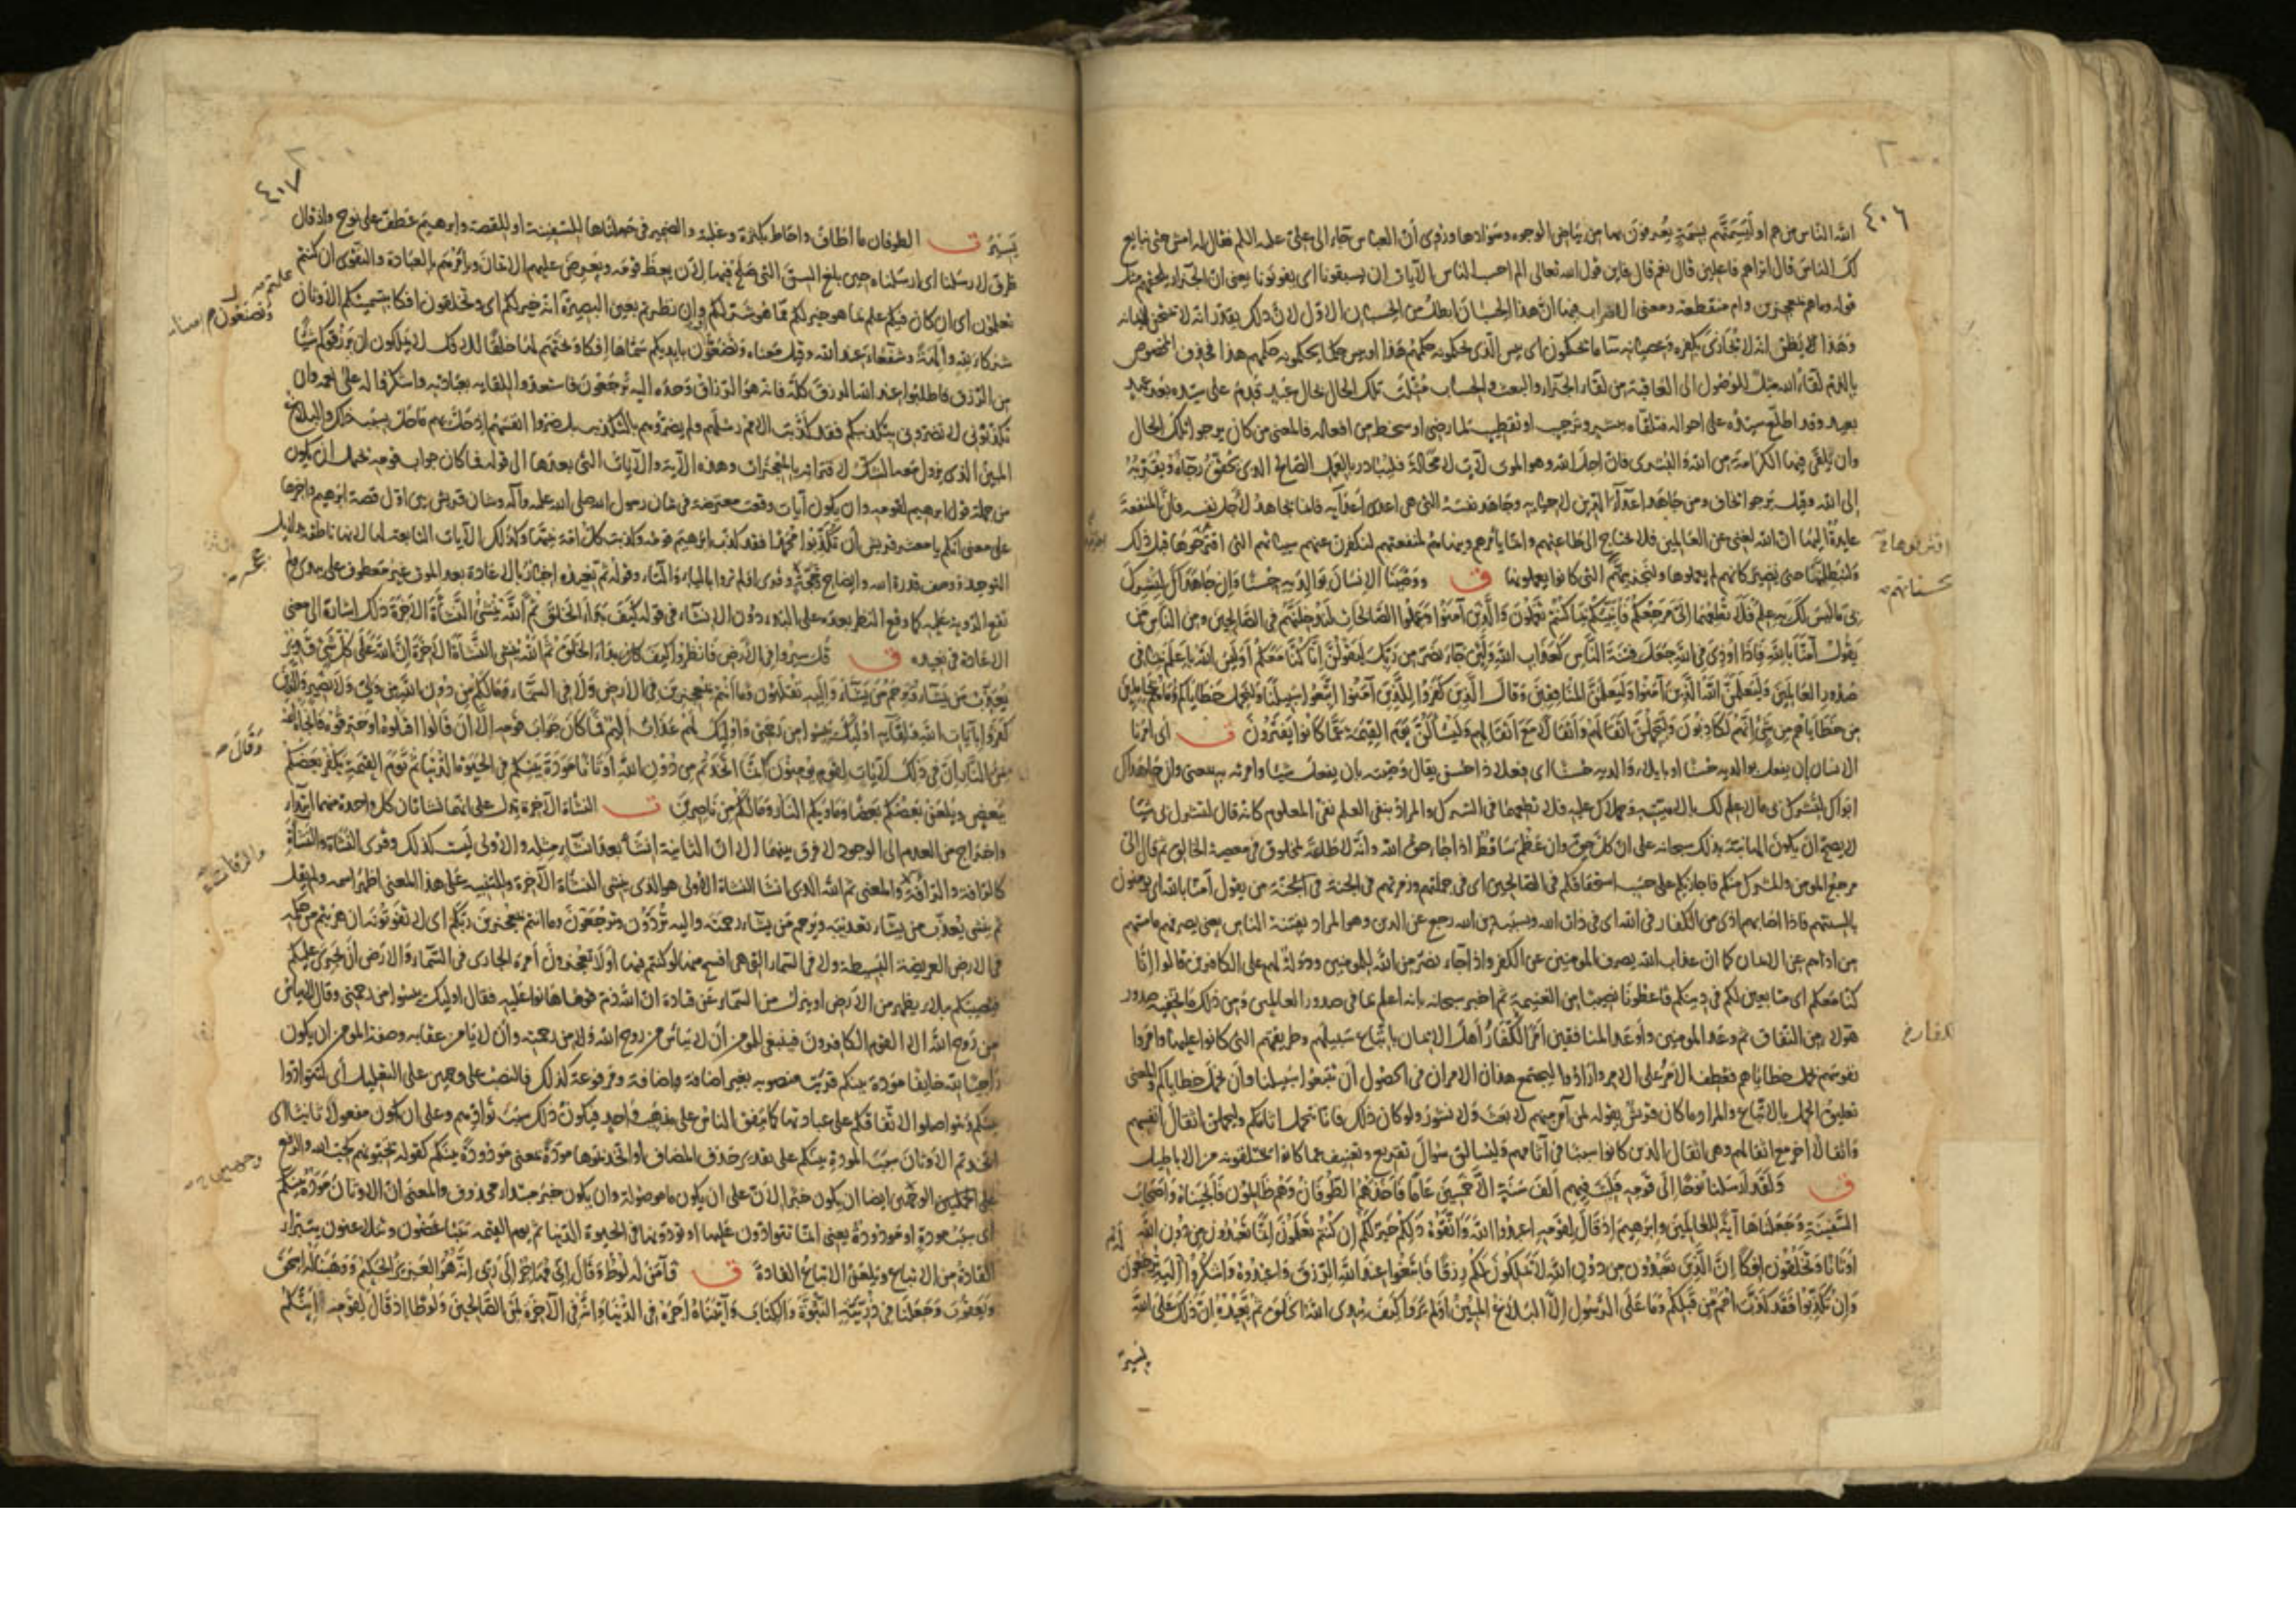 ٤٠٦
الله الناس من هم او ليسمنّهم بسمة يعرفون بها من بياض الوجوه وسوادها وروى ان العباس جاء الى علىّ عليه السلم فقال له امش حتى نبايع
لك الناس قال اتراهم فاعلين قال نعم قال فاين قول الله تعالى الم احسب الناس الآيات ان يسبقونا اى يفوتونا يعنى ان الجزاء يلحقهم
قوله وما هم بمعجزين وام منقطعة ومعنى الاضراب فيها ان هذا الحسبان ابطل من الحسبان الاول لان ذلك يقدّر انه لا يمتحن لايمانه
وهذا يظنّ انه لا يجازى بكفره وعصيانه ساء ما يحكمون اى بئس الذى يحكمونه حكمهم هذا او بئس حكما يحكمونه حكمهم هذا فحذف المخصوص
بالذم لقاء الله مثل للوصول الى العاقبة من لقاء الجزاء والبعث والحساب مثّلت تلك الحال بحال عبد قدم على سيّده بعد عهد
بعيد وقد اطّلع سيّده على احواله فتلقّاه ببشر وترحيب او تقطيب لما رضى او سخط من افعاله فالمعنى من كان يرجو تلك الحال
وان يلقى فيها الكرامة من الله والبشرى فان اجل الله وهو الموت لآت لا محالة فليبادر بالعمل الصالح الذى يحقّق رجاءه ويقرّبه
إلى الله وقيل يرجو يخاف ومن جاهد اعداء الدين لاحيائه وجاهد نفسه التى هى اعدى اعدائه فانما يجاهد لاجل نفسه فانّ المنفعة
عايدة اليها ان الله لغنى عن العالمين فلا يحتاج الى طاعتهم وانما يأمرهم وينهاهم لمنفعتهم لنكفرن عنهم سيئاتهم التى اقترحوها قبل ذلك
اقترفوها
حسناتهم
ولنبطلنها حتى تصير كانهم لم يعملوها ولنجزينّهم التى كانوا يعملونها ق ووصّينا الإنسان بوالديه حسنا وإن جاهداك لتشرك
بى ما ليس لك به علم فلا تطعهما إلىّ مرجعكم فأنبّئكم بما كنتم تعملون والّذين آمنوا وعملوا الصّالحات لندخلنّهم فى الصّالحين ومن النّاس من
يقول آمنّا بالله فإذا أوذى فى الله جعل فتنة النّاس كعذاب الله ولئن جاء نصر من ربّك ليقولنّ إنّا كنّا معكم أوليس الله بأعلم بما فى
صدور العالمين وليعلمنّ الله الّذين آمنوا وليعلمنّ المنافقين وقال الّذين كفروا للّذين آمنوا اتّبعوا سبيلنا ولنحمل خطاياكم وما هم بحاملين
من خطاياهم من شىء إنّهم لكاذبون وليحملنّ أثقالهم وأثقالا مع أثقالهم وليسألنّ يوم القيمة عمّا كانوا يفترون ت اى امرنا
الانسان ان يفعل بوالديه حسنا او بايلاء والديه حسنا اى فعلا ذا حسن يقال وصّيته بان يفعل شيئا وامرته به بمعنى وان جاهداك
ابواك لتشرك بى ما لا علم لك بالاهيّته وحملاك عليه فلا تطعهما فى الشرك والمراد بنفى العلم نفى المعلوم كانه قال لتشرك بى شيئا
لا يصحّ ان يكون الها نبّه بذلك سبحانه على ان كلّ حقّ وان عظم ساقط اذا جاء حق الله وانّه لا طاعة لمخلوق فى معصية الخالق ثم قال الىّ
مرجع المومن والمشرك منكم فاجازيكم على حسب استحقاقكم فى الصالحين اى فى جملتهم وزمرتهم فى الجنة من يقول آمنا بالله اى يؤمنون
بالسنتهم فاذا اصابهم اذى من الكفار فى الله اى فى ذات الله وبسبب دين الله رجع عن الدين وهو المراد بفتنة الناس يعنى يصرفهم ما مسّهم
من اذاهم عن الايمان كما ان عذاب الله يصرف المومنين عن الكفر واذا جاء نصر من الله للمومنين ودولة لهم على الكافرين قالوا انّا
كنا معكم اى متابعين لكم فى دينكم فاعطونا نصيبنا من الغنيمة ثم اخبر سبحانه بانه اعلم بما فى صدور العالمين ومن ذلك ما تخفيه صدور
هؤلاء من النفاق ثم وعد المومنين واوعد المنافقين امر الكفّار اهل الايمان باتّباع سبيلهم وطريقتهم التى كانوا عليها وامروا
نفوسهم بحمل خطاياهم فعطف الامر على الامر وارادوا ليجتمع هذان الامران فى الحصول ان تتبعوا سبيلنا وان نحمل خطاياكم والمعنى
تعليق الحمل بالاتّباع والمراد ما كان قريش يقوله لمن آمن منهم لا بعث ولا نشور ولو كان ذلك فانا نحمل اثامكم وليحملن اثقال انفسهم
واثقالا اخر مع اثقالهم وهى اثقال الذين كانوا سببا فى آثامهم وليسألن سؤال تقريع وتعنيف عما كانوا يختلقونه من الاباطيل
ق ولقد أرسلنا نوحا إلى قومه فلبث فيهم ألف سنة إلّا خمسين عاما فأخذهم الطّوفان وهم ظالمون فأنجيناه وأصحاب
السّفينة وجعلناها آية للعالمين وإبرهيم إذ قال لقومه اعبدوا الله واتّقوه ذلكم خير لكم إن كنتم تعلمون إنّما تعبدون من دون الله
أوثانا وتخلقون إفكا إنّ الّذين تعبدون من دون الله لا يملكون لكم رزقا فابتغوا عند الله الرّزق واعبدوه واشكروا له إليه ترجعون
وإن تكذّبوا فقد كذّب أمم من قبلكم وما على الرّسول إلّا البلاغ المبين أولم يروا كيف يبدئ الله الخلق ثمّ يعيده إنّ ذلك على الله
يسير
٤٠٧
يسير ت الطوفان ما اطاف واحاط بكثرة وغلبة والضمير فى جعلناها للسفينة او للقصة وابرهيم عطف على نوح واذ قال
ظرف لارسلنا اى ارسلناه حين بلغ السن التى صلح فيها لان يعظ قومه ويعرض عليهم الايمان ويأمرهم بالعبادة والتقوى ان كنتم
تعلمون اى ان كان فيكم علم بما هو خير لكم مما هو شرّ لكم وان نظرتم بعين البصيرة انه خير لكم اى وتخلقون افكا بتسميتكم الاوثان
شركاء لله وآلهة وشفعاء عند الله وقيل معناه وتصنعون بايديكم سمّاها افكا ونحتهم لها خلقا للافك لا يملكون ان يرزقوكم شيئا
من الرّزق فاطلبوا عند الله الرزق كلّه فانه هو الرّزاق وحده اليه ترجعون فاستعدّوا للقائه بعبادته واشكروا له على نعمه وان
تكذبونى لا تضرّونى بتكذيبكم فقد كذّبت الامم رسلهم ولم يضرّوهم بالتكذيب بل ضرّوا انفسهم اذ حلّ بهم ما حلّ بسبب ذلك والبلاغ
المبين الذى يزول معه الشكّ لاقترانه بالمعجزات وهذه الآية والآيات التى بعدها الى قوله فما كان جواب قومه تحتمل ان يكون
من جملة قول ابرهيم لقومه وان يكون آيات وقعت معترضة فى شان رسول الله صلى الله عليه وآله وشان قريش بين اول قصة ابرهيم وآخرها
على معنى انكم يا معشر قريش ان تكذّبوا محمّدا فقد كذّب ابرهيم قومه وكذّبت كل امة نبيها وكذلك الآيات التابعة لها لانها ناطقة بدلايل
التوحيد ووصف قدرة الله وايضاح حجّته وقرى اولم تروا بالياء والتاء وقوله ثم يعيده اخبار بالاعادة بعد الموت غير معطوف على يبدئ ولم
تقع الرؤية عليه كما وقع النظر بعده على البدء دون الانشاء فى قوله كيف بدأ الخلق ثم الله ينشئ النشأة الآخرة ذلك اشارة الى معنى
الاعادة فى يعيده ق قل سيروا فى الأرض فانظروا كيف بدأ الخلق ثمّ الله ينشئ النّشأة الآخرة إنّ الله على كلّ شىء قدير
يعذّب من يشاء ويرحم من يشاء وإليه تقلبون وما أنتم بمعجزين فى الأرض ولا فى السّماء وما لكم من دون الله من ولىّ ولا نصير والّذين
كفروا بآيات الله ولقائه أولئك يئسوا من رحمتى وأولئك لهم عذاب أليم فما كان جواب قومه إلّا أن قالوا اقتلوه أو حرّقوه فأنجاه الله
وقال
من النّار إنّ فى ذلك لآيات لقوم يؤمنون إنّما اتّخذتم من دون الله أوثانا مودّة بينكم فى الحيوة الدّنيا ثمّ يوم القيمة يكفر بعضكم
ببعض ويلعن بعضكم بعضا ومأويكم النّار وما لكم من ناصرين ت النشأة الآخرة يدل على انهما نشأتان كل واحدة منهما ابتداء
واختراع من العدم الى الوجود لا فرق بينهما الا ان الثانية انشاء بعد انشاء مثله والاولى ليست كذلك وقرى النشأة والنشاءة
كالرأفة والرآفة والمعنى ثم الله الذى انشأ النشأة الأولى هو الذى ينشئ النشأة الآخرة وللتنبيه على هذا المعنى اظهر اسمه ولم يقل
ثم ينشئ يعذّب من يشاء تعذيبه ويرحم من يشاء رحمته واليه تردّون وترجعون وما انتم بمعجزين ربّكم اى لا تفوتونه ان هربتم من حكمه
فى الارض العريضة البسيطة ولا فى السماء التى هى افسح منها لو كنتم فيها او لا تعجزون امره الجارى فى السماء والارض ان يجرى عليكم
فيصيبكم ببلاء يظهر من الارض او ينزل من السماء عن قتادة ان الله ذم قوما هانوا عليه فقال اولئك يئسوا من رحمتى وقال لا ييأس
من روح الله الا القوم الكافرون فينبغى للمومن ان لا ييأس من روح الله ولا من رحمته وان لا يأمن عقابه وصفة المومن ان يكون
راجيا لله خايفا مودة بينكم قريت منصوبة بغير اضافة وباضافة ومرفوعة كذلك فالنصب على وجهين على التعليل اى لتتوادّوا
بينكم وتتواصلوا لاتّفاقكم على عبادتها كما يتفق الناس على مذهب واحد فيكون ذلك سبب توادّهم وعلى ان يكون مفعولا ثانيا اى
اتخذتم الاوثان سبب المودة بينكم على تقدير حذف المضاف او اتخذتموها مودّة بمعنى مودودة بينكم كقوله يحبّونهم كحبّ الله والرفع
على وجهين ايضا ان يكون خبرا لان على ان يكون ما موصولة وان يكون خبر مبتداء محذوف والمعنى ان الاوثان مودّة بينكم
اى سبب مودة او مودودة يعنى انّما تتوادّون عليها او تودّونها فى الحيوة الدنيا ثم يوم القيمة تتباغضون وتتلاعنون يتبرّأ
القادة من الاتباع ويلعن الاتباع القادة ق فآمن له لوط وقال إنّى مهاجر إلى ربّى إنّه هو العزيز الحكيم ووهبنا له إسحق
ويعقوب وجعلنا فى ذرّيّته النّبوّة والكتاب وآتيناه أجره فى الدّنيا وإنّه فى الآخرة لمن الصّالحين ولوطا إذ قال لقومه أئنّكم